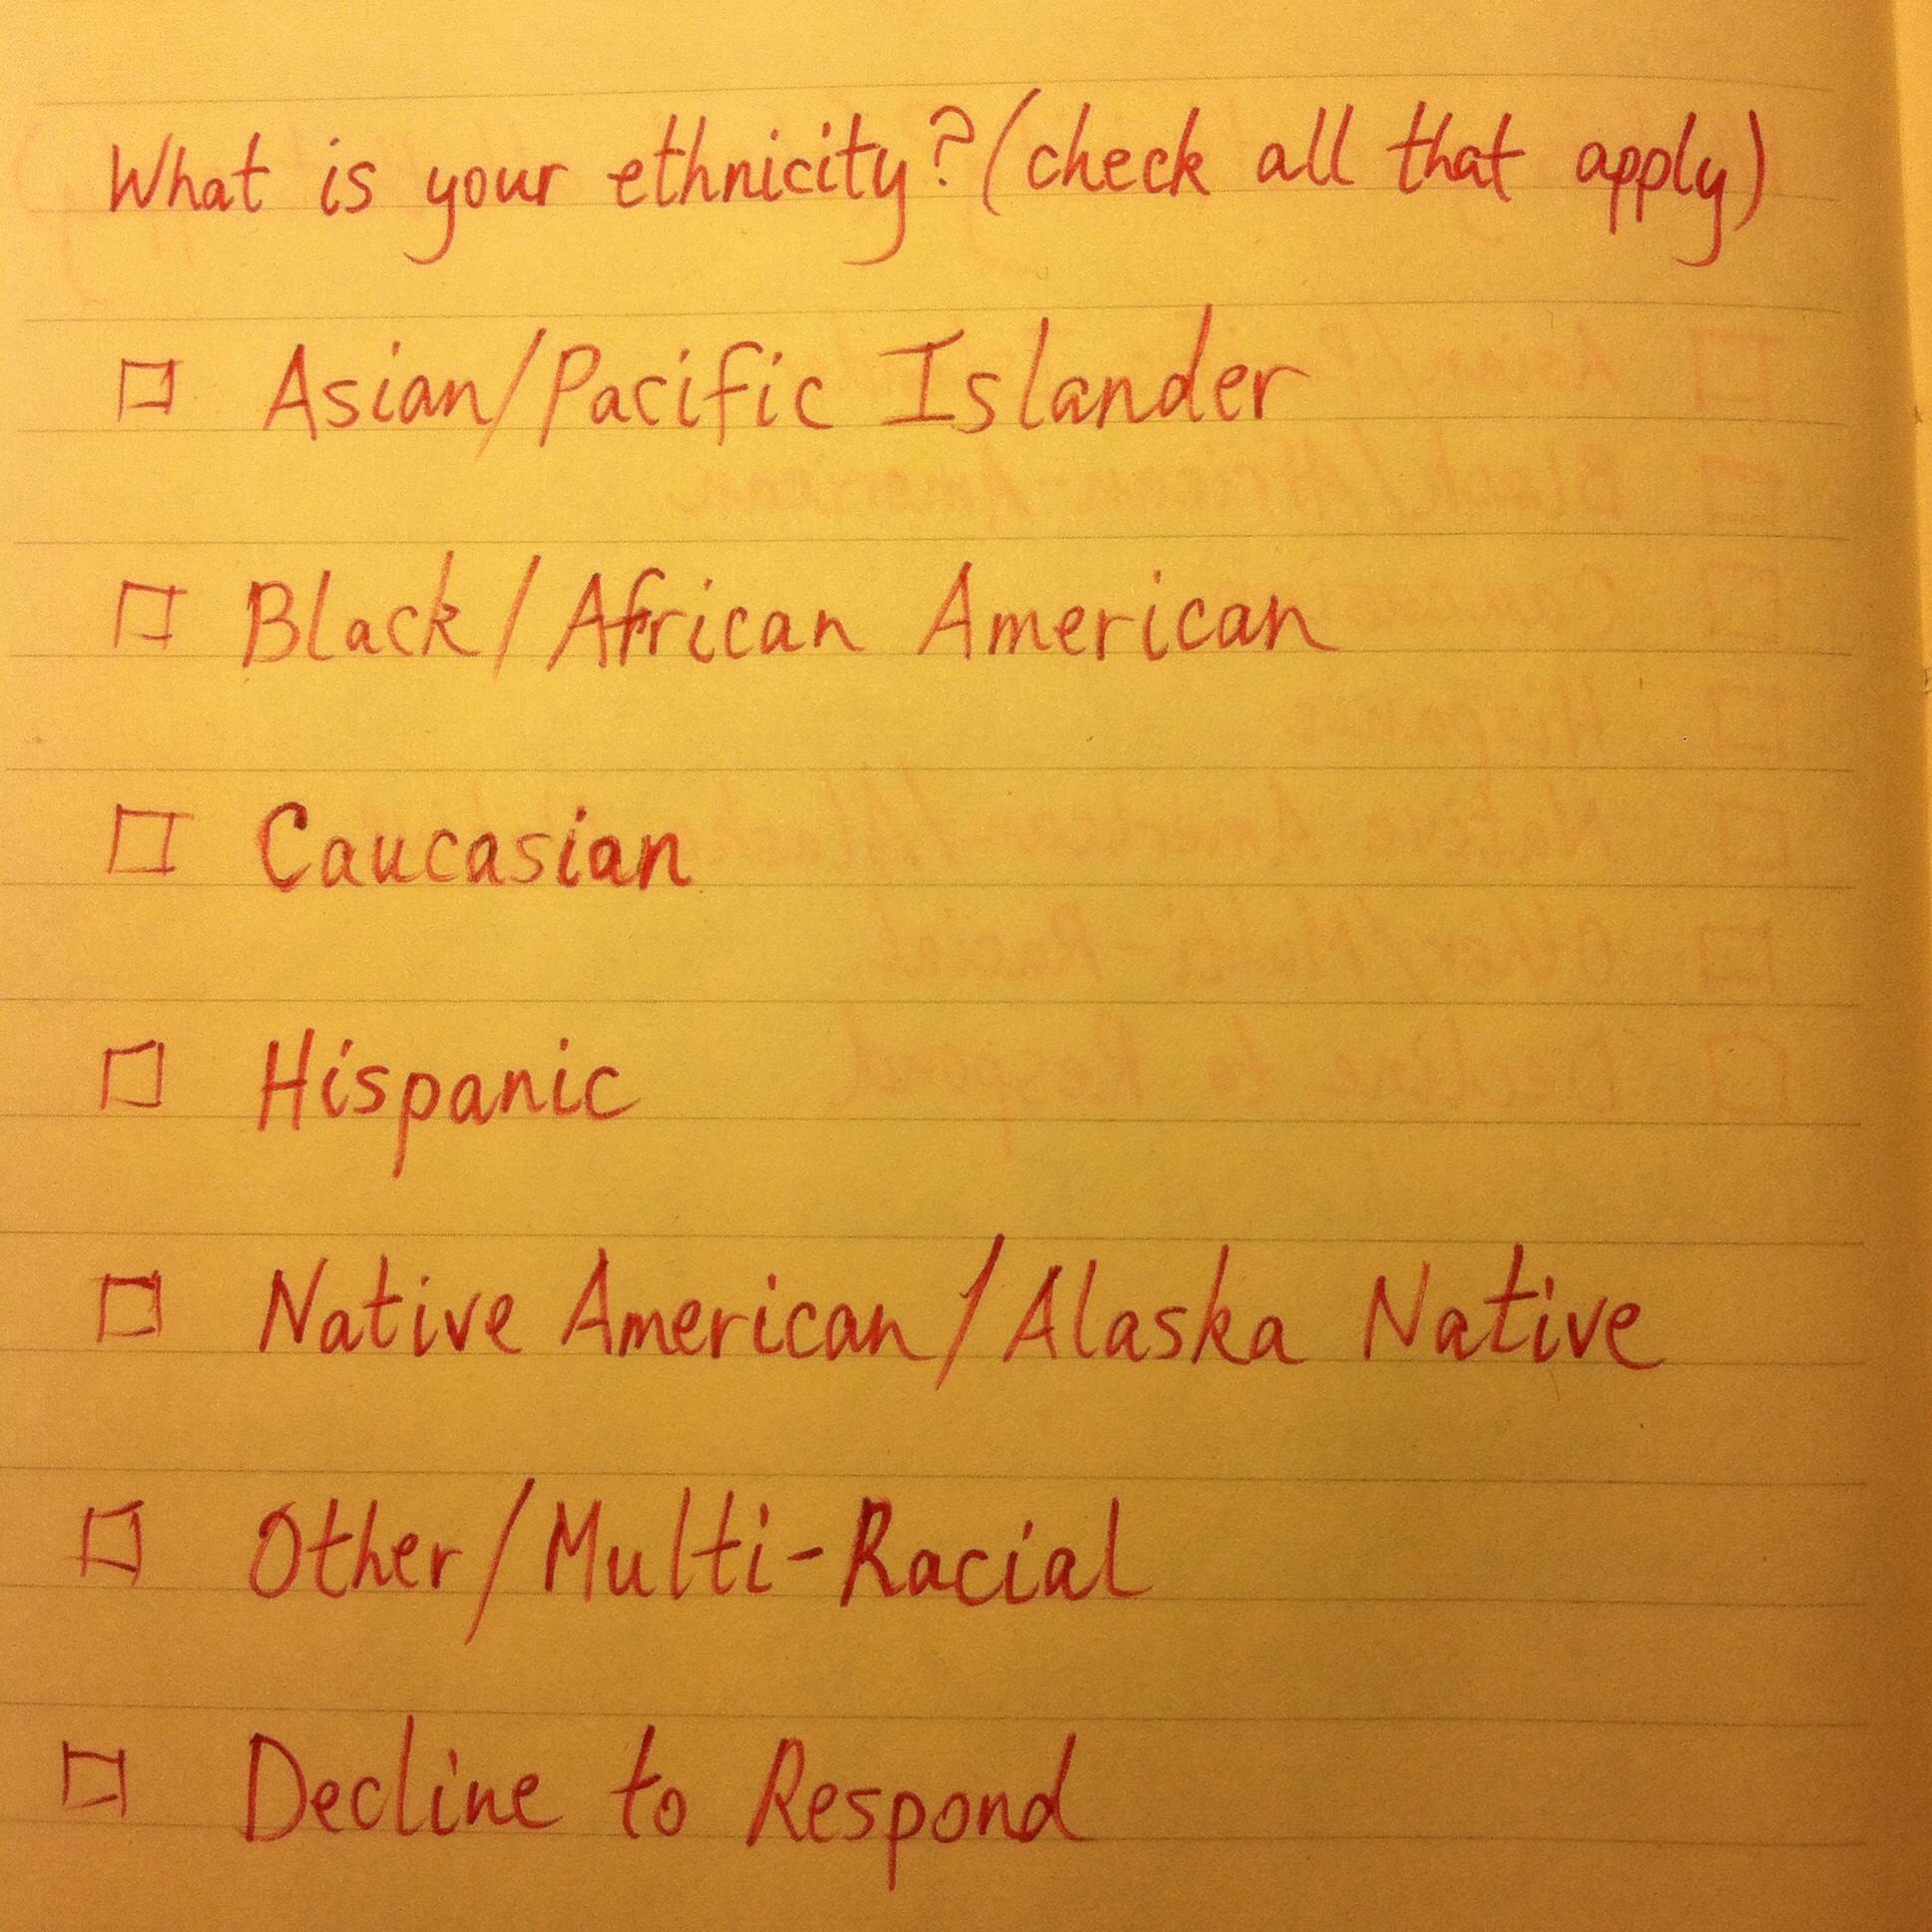 What is your ethnicity? (check all that apply)
Asian/Pacific Islander
Black/African American
Caucasian
Hispanic
Native American/Alaska Native
Other/Multi-Racial
Decline to Respond